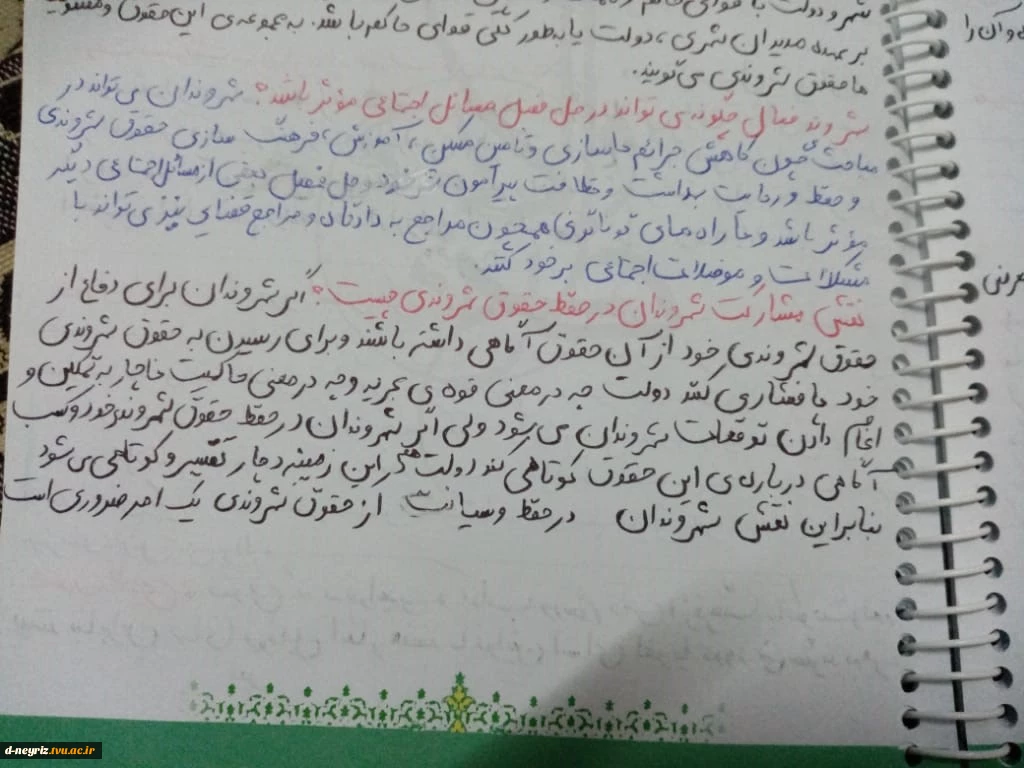 شهروند و دولت با قوای حاکم
بر عهده مدیران شهری، دولت یا بطور کلی قوای حاکم باشد. به مجموعه‌ی این حقوق و مسئولیت
ها حقوق شهروندی می‌گویند.
شهروند فعال چگونه می تواند در حل فصل مسائل اجتماعی مؤثر باشد؟ شهروندان می‌تواند در
مباحث چون کاهش جرائم جاسازی و تامین مسکن، آموزش، فرهنگ سازی حقوق شهروندی
و حفظ و رعایت بهداشت و نظافت پیرآمون و حل فصیل بعضی از مسائل اجتماعی دیگر
مؤثر باشد و با راه های قانونی همچون مراجع به دادگاه و مراجع قضایی نیز می تواند با
مشکلات و معضلات اجتماعی برخورد کنند.
نقش مشارکت شهروندان در حفظ حقوق شهروندی چیست؟ اگر شهروندان برای دفاع از
حقوق شهروندی خود از آن حقوق آگاهی داشته باشند و برای رسیدن به حقوق شهروندی
خود پافشاری کنند دولت چه در معنی قوه ی مجریه و چه در معنی حاکمیت ناچار به تمکین و
انجام دادن توقعات شهروندان می شود ولی اگر شهروندان در حفظ حقوق شهروندی خود و کسب
آگاهی درباره‌ی این حقوق کوتاهی کند دولت هم در این زمینه دچار تقصیر و کوتاهی می شود
بنابراین نقش شهروندان در حفظ و صیانت از حقوق شهروندی یک امر ضروری است
d-neyriz.tvu.ac.ir